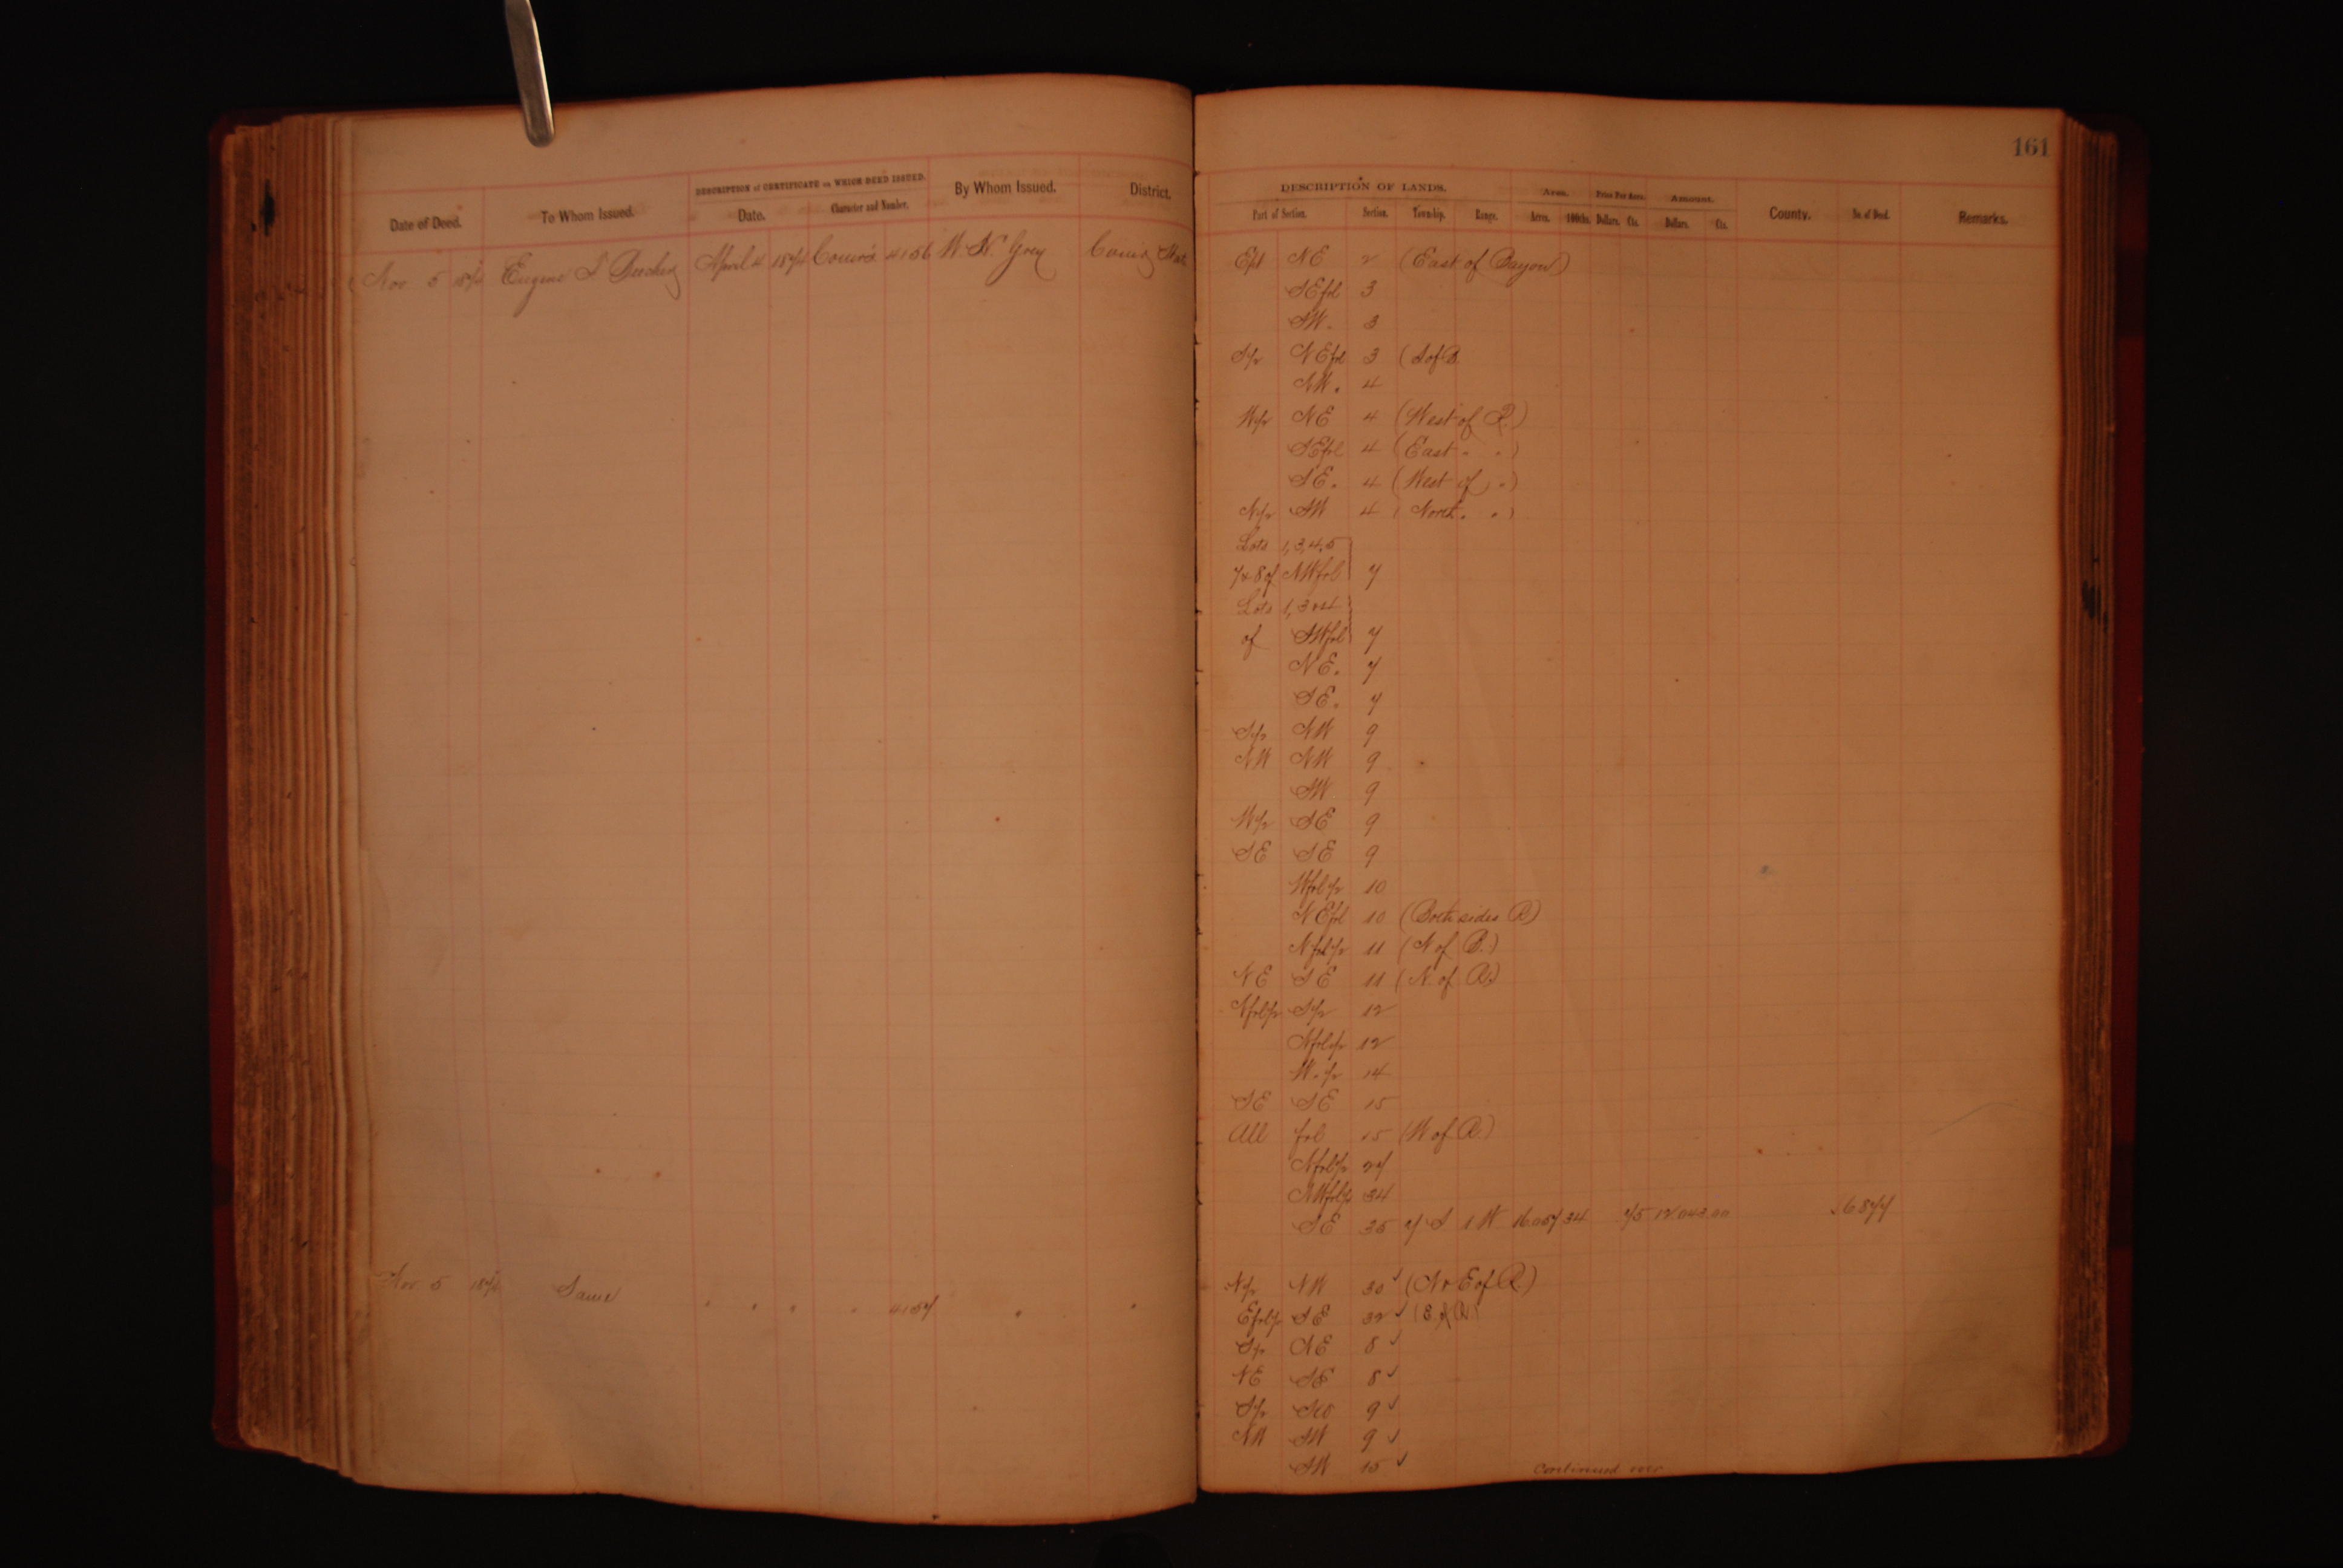 161
DESCRIPTION of CERTIFICATE on WHICH DEED ISSUED.
Date of Deed. To Whom Issued. Date. Character and Number. By Whom Issued. District.
DESCRIPTION OF LANDS. Area. Price Per Acre. Amount.
Part of Section. Section. Township. Range. Acres. 100ths. Dollars. Cts. Dollars. Cts. County. No. of Deed. Remarks.
Nov 5 1874 Eugene April 4 1874 4156 W. N. Grey
E½ NE 2 (East of Bayou)
SEfrl 3
SW. 3
S½ NEfrl 3 (S of B
NW. 4
W½ NE 4 (West of B.)
SEfrl 4 (East " ")
SE. 4 (West of ")
N½ SW 4 (North " ")
Lots 1,3,4,5
7 & 8 of NWfrl 7
Lots 1,3&4
of SWfrl 7
NE. 7
SE. 7
S½ NW 9
NW NW 9
SW 9
W½ SE 9
SE SE 9
Wfrl½ 10
NEfrl 10 (Both sides B)
Nfrl½ 11 (N of B.)
NE SE 11 (N. of B.)
Nfrl½ S½ 12
Nfrl½ 12
W.½ 14
SE SE 15
All frl 15 (W of B.)
Nfrl½ 27
NWfrl½ 34
SE 35 7 S 1 W 16057 34 75 12043.00 6877
Nov 5 1874 Same " " " " 4157 " "
N½ NW 30 ✓ (N & E of B.)
Efrl½ SE 32 ✓ (E. of B.)
S½ NE 8 ✓
NE SE 8 ✓
S½ SW 9 ✓
NW SW 9 ✓
SW 15 ✓
Continued over